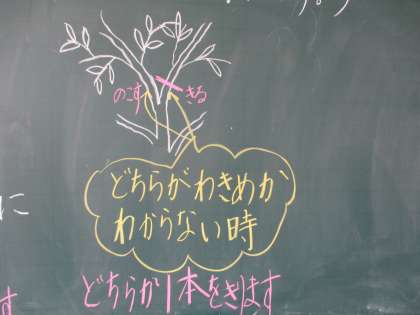 のこす
きる
どちらがわきめか
わからない時
どちらか1本をきります
に
す